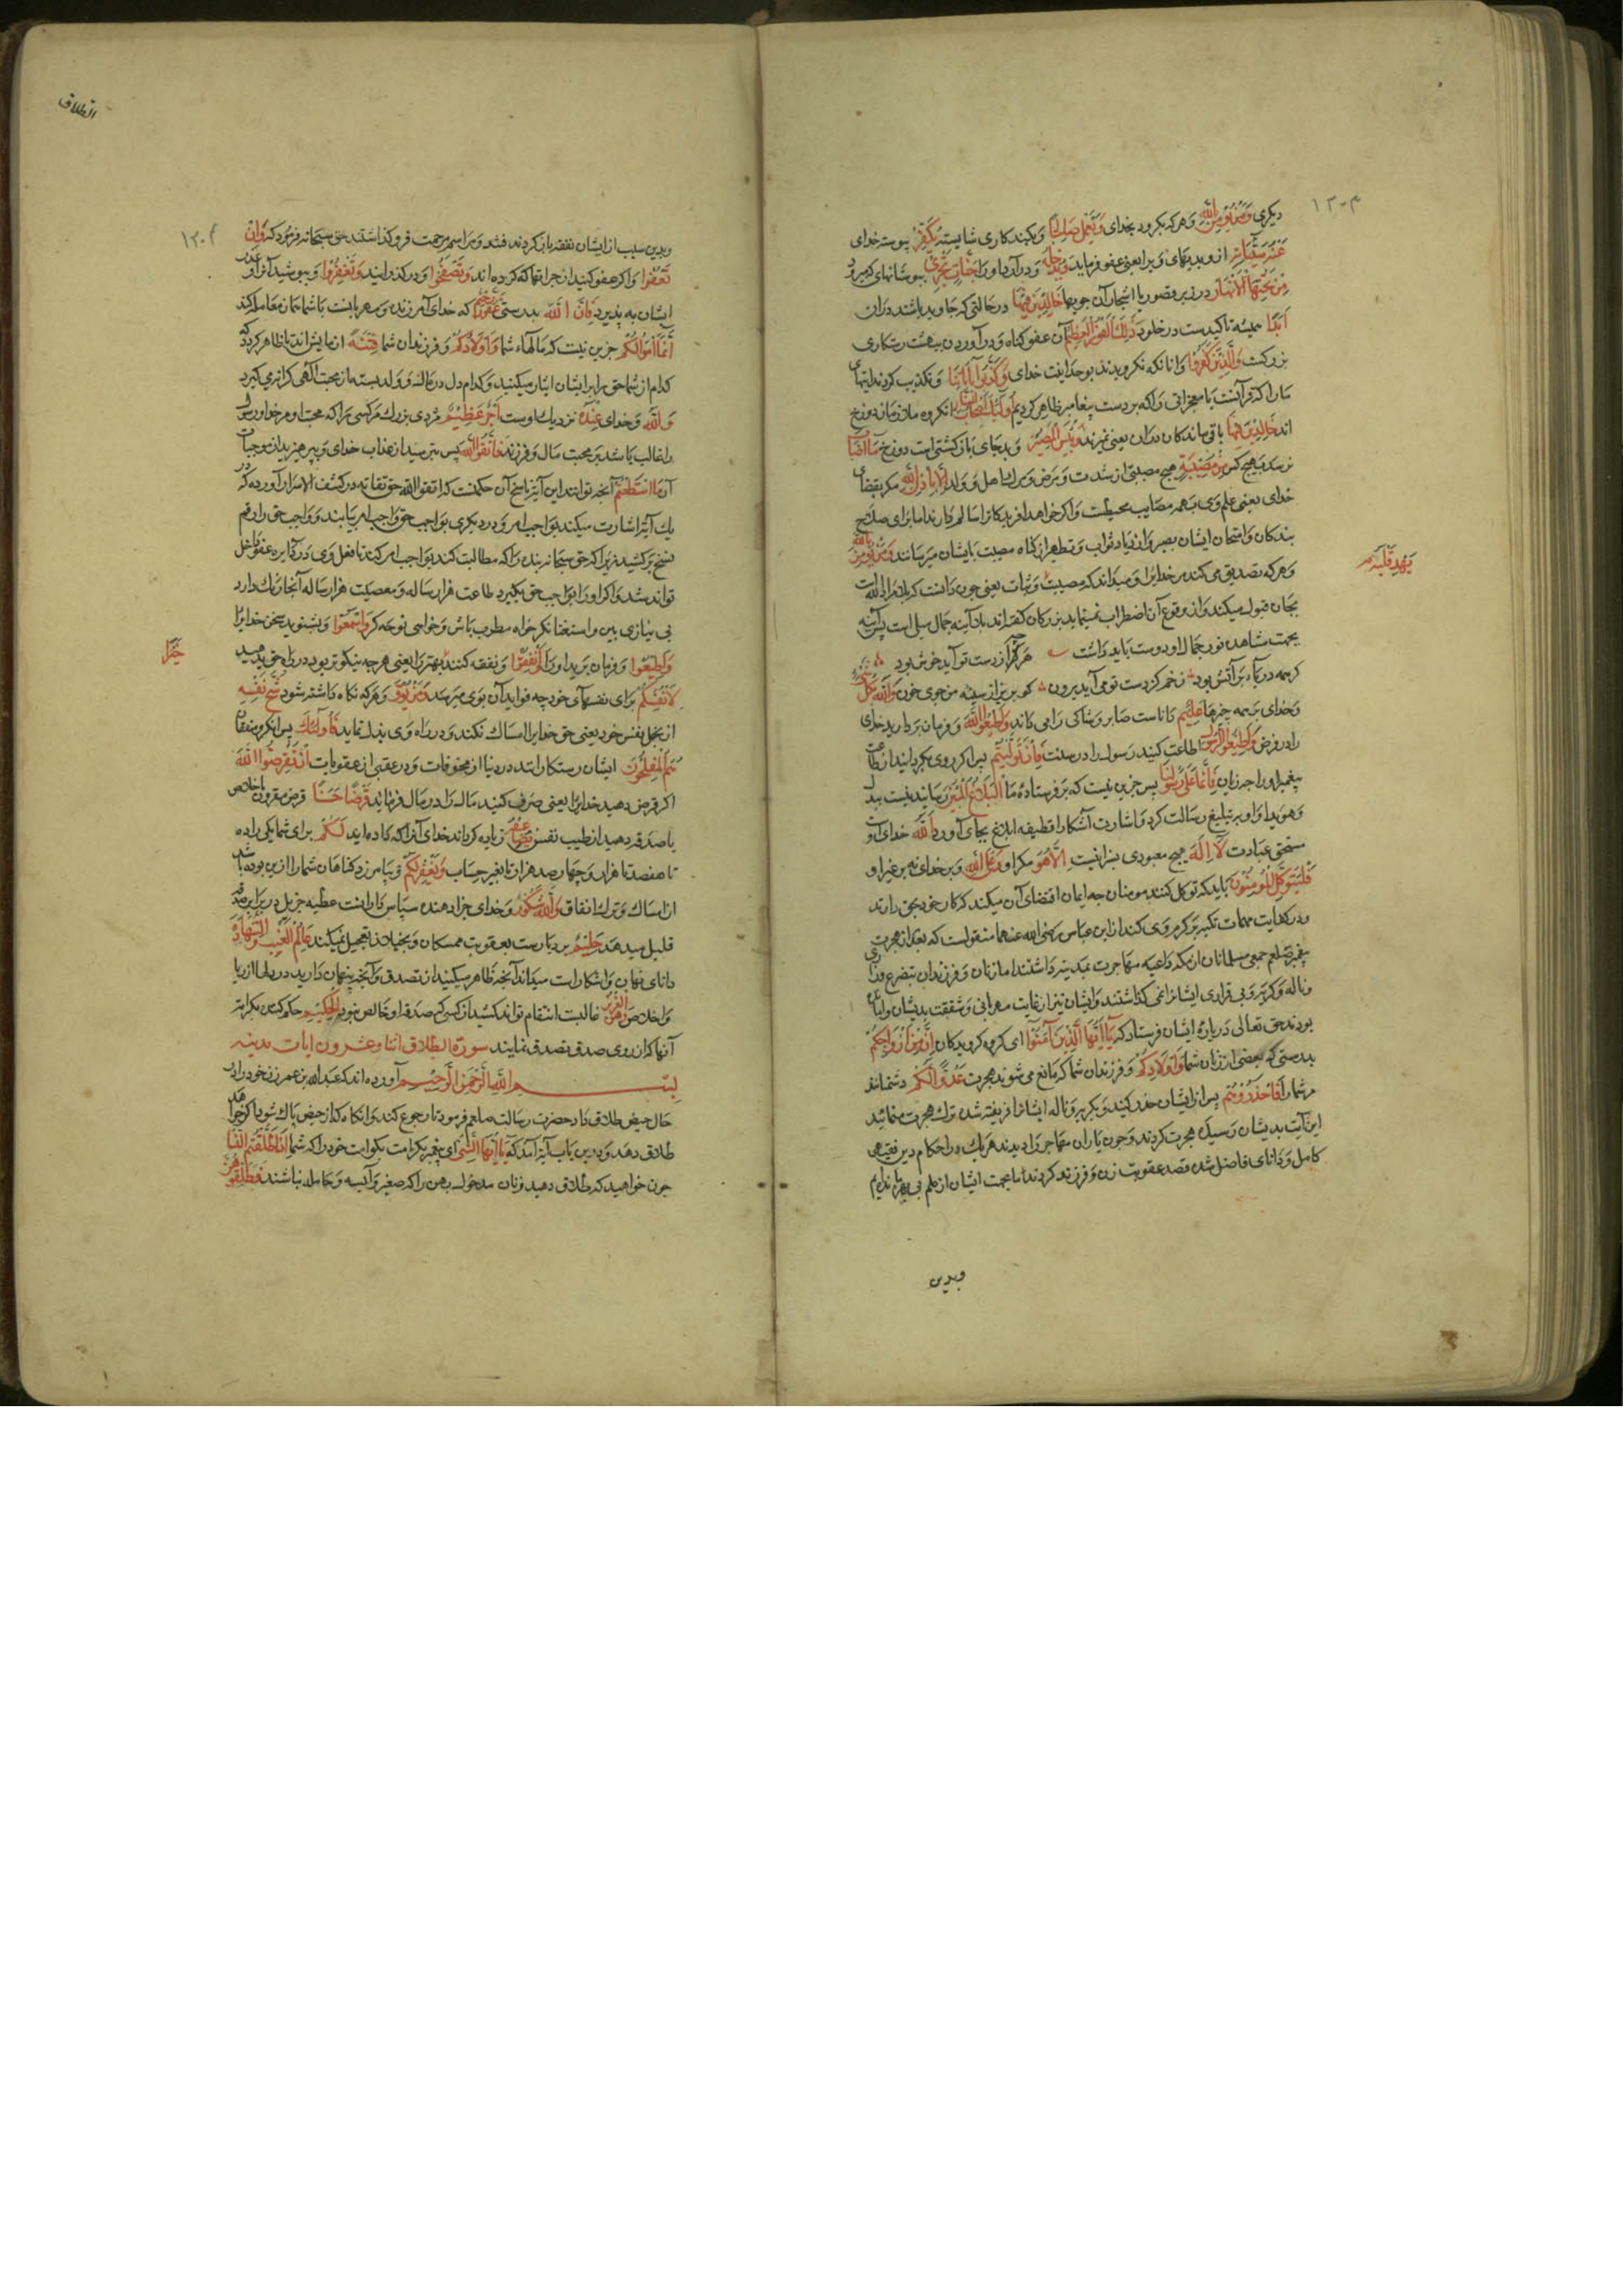 ۱۲۰۳
دیکری وَمَنْ یُؤْمِنْ بِاللّٰهِ وهرکه بکرود بخدای وَیَعْمَلْ صَالِحًا وبکند کاری شایسته یُکَفِّرْ بپوسته خدای
عَنْهُ سَیِّئَاتِهِ ازو بدیهای ویرا یعنی عفو فرماید وَیُدْخِلْهُ ودر آرد اورا جَنَّاتٍ تَجْرِی ببوستانهای که میرود
مِنْ تَحْتِهَا الْاَنْهَارُ در زیر قصور یا اشجار آن جویها خَالِدِینَ فِیهَا در حالتی که جاوید باشند دران
اَبَدًا همیشه تاکیدست در خلود ذٰلِكَ الْفَوْزُ الْعَظِیمُ آن عفو کناه ودر آوردن ببهشت رستکاری
بزرکست وَالَّذِینَ کَفَرُوا وانانکه نکرویدند بوحدانیت خدای وَکَذَّبُوا بِآیَاتِنَا وتکذیب کردند ایتهای
مارا که قرآنست یا معجزاتی را که بر دست پیغامبر ظاهر کردیم اُولٰئِكَ اَصْحَابُ النَّارِ انکروه ملازمان دوزخ
اند خَالِدِینَ فِیهَا باقی ماندکان دران یعنی نمیرند وَبِئْسَ الْمَصِیرُ وبد جای بازکشتی است دوزخ مَا اَصَابَ
نرسد بهیچ کس مِنْ مُصِیبَةٍ هیچ مصیبتی از شدت ومرض ومرك اهل وولد اِلَّا بِاِذْنِ اللّٰهِ مکر بقضای
خدای یعنی علم وی بهمه مصایب محیطست واکر خواهد افریدکانرا سالم دارند اما برای صلاح
بندکان وامتحان ایشان بصبر وازدیاد ثواب وتطهیر از کناه مصیبت بایشان میرسانند وَمَنْ یُؤْمِنْ بِاللّٰهِ
وهرکه تصدیق می کند مر خدایرا ومیداند که مصیبت وثبات یعنی چون دانست که بلا مراد الله است
یَهْدِ قَلْبَهُ
بجان قبول میکند واز وقوع آن اضطراب نمینماید بزرکان کفته اند بلا آینه جمال مبلی است پس آینه
بجهت مشاهده نور جمال اودوست باید داشت هرچه از دست تو آید خوش بود
کر همه دریاء پر آتش بود زخم کز دست تو می آید برون کو بریز از سینه من جوی خون وَاللّٰهُ بِکُلِّ شَیْءٍ
وخدای بهمه چیزها عَلِیمٌ داناست صابر وشاکی را می داند وَاَطِیعُوا اللّٰهَ وفرمان بردارید خدای
را در فرض وَاَطِیعُوا الرَّسُولَ واطاعت کنید رسول را در سنت فَاِنْ تَوَلَّیْتُمْ پس اکر روی بکردانید از طاعت
پیغمبر اورا چه زیان فَاِنَّمَا عَلٰی رَسُولِنَا پس جزین نیست که بر فرستاده ما الْبَلَاغُ الْمُبِینُ رسانیدنیست
وهویدا واو بر تبلیغ رسالت کرد واشارت آشکارا وظیفه ابلاغ بجای آورد اَللّٰهُ خدای است
مستحق عبادت لَا اِلٰهَ هیچ معبودی بسزا نیست اِلَّا هُوَ مکر او وَعَلَی اللّٰهِ وبر خدای نه بر غیر او
فَلْیَتَوَکَّلِ الْمُؤْمِنُونَ بایدکه توکل کنند مومنان چه ایمان اقتضای آن میکند که کار خود بحق دارند
ودر کفایت مهمات تکیه بر کرم وی کنند از ابن عباس رضی الله عنهما منقولست که بعد از هجرت
پیغمبر صلعم جمعی مسلمانان از مکه داعیه مهاجرت بمدینه داشتند اما زنان وفرزندان بتضرع وزاری
وناله وکریه وبی قراری ایشانرا نمی کذاشتند وایشان نیز از غایت مهربانی وشفقت بدیشان
بودند حق تعالی در باره ایشان فرستاد که یَا اَیُّهَا الَّذِینَ آمَنُوا ای کروه کرویدکان اِنَّ مِنْ اَزْوَاجِکُمْ
بدرستی که بعضی از زنان شما وَاَوْلَادِکُمْ وفرزندان شما که مانع می شوند هجرت عَدُوًّا لَکُمْ دشمنانند
مر شمارا فَاحْذَرُوهُمْ پس از ایشان حذر کنید وبکریه وناله ایشان فریفته شده ترك هجرت منمائید
این آیت بدیشان رسیده هجرت کردند وچون یاران مهاجر را دیدند هر یك در احکام دین فقیهی
کامل ودانای فاضل شده قصد عقوبت زن وفرزند کردند که ما بجهت ایشان از علم بی بهره مانده ایم
وبدین
الطلاق
۱۲۰۴
وبدین سبب از ایشان نفقه باز کردند ومراسم مرحمت فروکذاشتند حق سبحانه فرمود که وَاِنْ
تَعْفُوا واکر عفو کنید از جرایمها که کرده اند وَتَصْفَحُوا ودر کذرانید وَتَغْفِرُوا وبپوشید آنرا وعذر
ایشان به پذیرید فَاِنَّ اللّٰهَ بدرستی غَفُورٌ رَحِیمٌ که خدای آمرزنده ومهربانست با شما همان معامله کند
اِنَّمَا اَمْوَالُکُمْ جزین نیست که مالهاء شما وَاَوْلَادُکُمْ وفرزندان شما فِتْنَةٌ ازمایش اند تا ظاهر کردد که
کدام از شما حق را بر ایشان ایثار میکنید وکدام دل در مال وولد بسته از محبت الهی کرانه می کیرد
وَاللّٰهُ وخدای عِنْدَهُ نزدیك اوست اَجْرٌ عَظِیمٌ مزدی بزرك مر کسی را که محبت او مر خدا ورسول
را غالب باشد بر محبت مال وفرزند فَاتَّقُوا اللّٰهَ پس بترسید از عذاب خدای وبپرهیزید از موجبات
آن مَا اسْتَطَعْتُمْ آنچه توانید این آیت ناسخ آن حکمست که اتقوا الله حق تقاته در کشف الاسرار آورده که در
یك آیة اشارت میکند بواجب امر ودر دیکری بواجب حق واجب امر بیامد وواجب حق را رقم
نسخ برکشید زیرا که حق سبحانه بنده را که مطالبت کند بواجب امر کند تا فعل وی در دایره عفو داخل
تواند شد واکر اورا بواجب حق بکیرد طاعت هزار ساله ومعصیت هزار ساله آنجا یك رنك دارد
بی نیازی بین واستغنا نکر خواه مطرب باش وخواهی نوحه کر وَاسْمَعُوا وبشنوید سخن خدایرا
وَاَطِیعُوا وفرمان برید اورا وَاَنْفِقُوا ونفقه کنید بهتر را یعنی هر چه نیکوتر بود در راه حق بدهید
خَیْرًا
لِاَنْفُسِکُمْ برای نفسهای خود چه فواید آن بوی میرسد وَمَنْ یُوقَ وهرکه نکاه داشته شود شُحَّ نَفْسِهِ
از بخل نفس خود یعنی حق خدایرا امساك نکند ودر راه وی بذل نماید فَاُولٰئِكَ پس انکروه منفقان
هُمُ الْمُفْلِحُونَ ایشان رستکارانند در دنیا از مخوفات ودر عقبی از عقوبات اِنْ تُقْرِضُوا اللّٰهَ
اکر قرض دهید خدایرا یعنی صرف کنید مال را در مال فرمایند قَرْضًا حَسَنًا قرض مقرون باخلاص
یا صدقه دهید از طیب نفس یُضَاعِفْهُ زیاده کرداند خدای آنرا که داده اید لَکُمْ برای شما یکی را ده
تا هفصد تا هزار وچهارصد هزار تا بغیر حساب وَیَغْفِرْ لَکُمْ وبیامرزد کناهان شمارا ازین بوده باشد
از امساك وترك انفاق وَاللّٰهُ شَکُورٌ وخدای جزا دهنده سپاس دارانست عطیه جزیل در برابر صدقه
قلیل میدهد حَلِیمٌ بردبارست بعقوبت ممسکان وبخیلان تعجیل نمیکند عَالِمُ الْغَیْبِ وَالشَّهَادَةِ
دانای نهان واشکاراست میداند آنچه ظاهر میکنید از تصدق وآنچه پنهان دارید در دلها از ریا
واخلاص الْعَزِیزُ غالبست انتقام تواند کشید از کسی که صدقه او خالص نبود الْحَکِیمُ حکم کننده بکرامت
آنها که از روی صدق تصدق نمایند سورة الطلاق اثنا وعشرون ایات مدینه
بِسْمِ اللّٰهِ الرَّحْمٰنِ الرَّحِیمِ آورده اند که عبدالله بن عمر زن خود را در
حال حیض طلاق داد حضرت رسالت صلعم فرمود تا رجوع کند وانکاه که از حیض پاك شود اکر خواهد
طلاق دهد ودرین باب آیة آمد که یَا اَیُّهَا النَّبِیُّ ای پیغمبر بکرامت بکو امت خود را که شما اِذَا طَلَّقْتُمُ النِّسَاءَ
چون خواهید که طلاق دهید زنان مدخوله بهن را که صغیر وآیسه وحامله نباشند فَطَلِّقُوهُنَّ